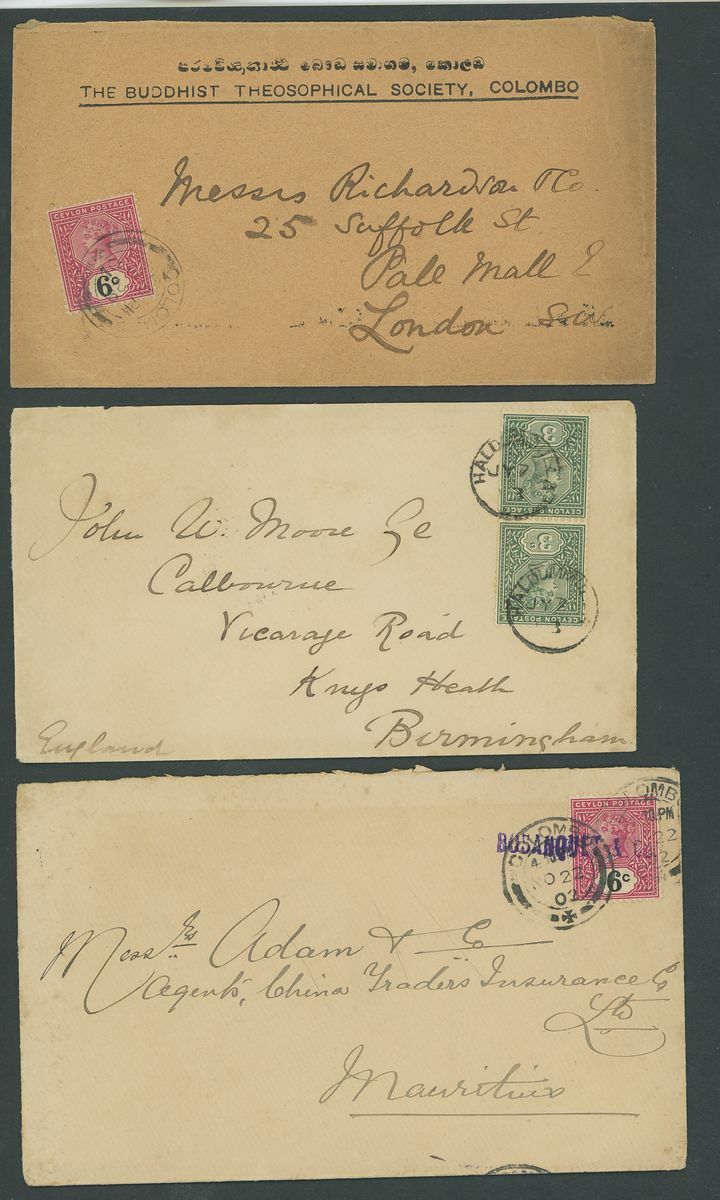 පරමවිඥානාර්ථ බෞද්ධ සමාගම, කොලඹ
THE BUDDHIST THEOSOPHICAL SOCIETY, COLOMBO
Messrs Richardson & Co.
25 Suffolk St
Pall Mall E
London S.W
CEYLON POSTAGE
6c
COLO
John W. Moore Esq
Calbourne
Vicarage Road
Kings Heath
Birmingham
England
HALDUMMULLA
JY 7
3
CEYLON POSTAGE
3c
HALDUMMULLA
JY 7
3
CEYLON POSTAGE
3c
BOSANQUET
COLOMBO
NO 22
02
CEYLON POSTAGE
6c
COLOMBO
PM
22
Messrs Adam & Co
Agents, China Traders Insurance Co
Ltd
Mauritius